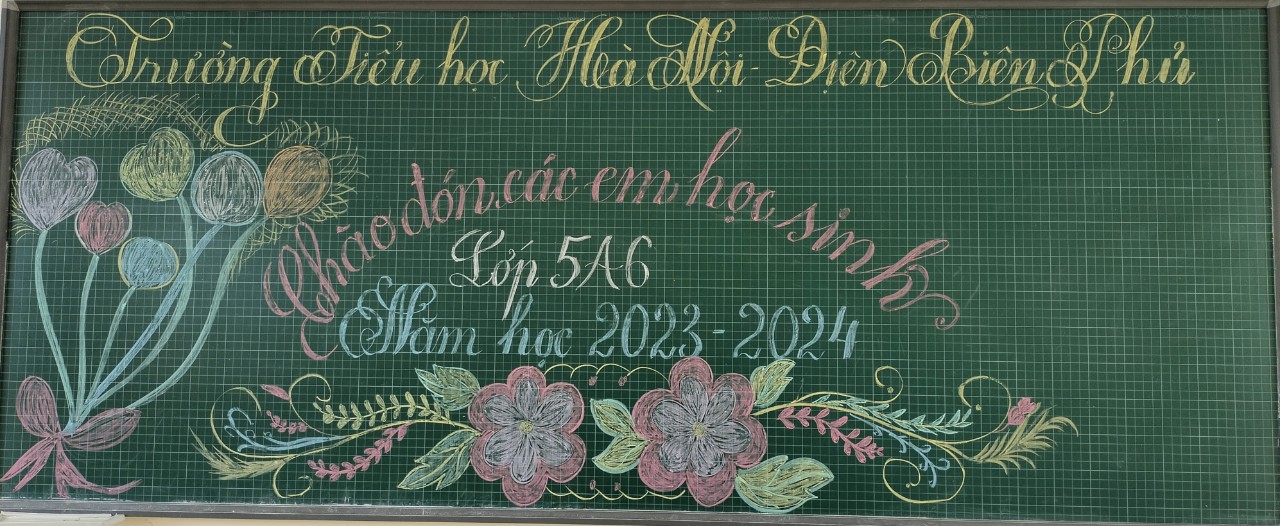 Trường Tiểu học Hà Nội - Điện Biên Phủ
Chào đón các em học sinh
Lớp 5A6
Năm học 2023 - 2024